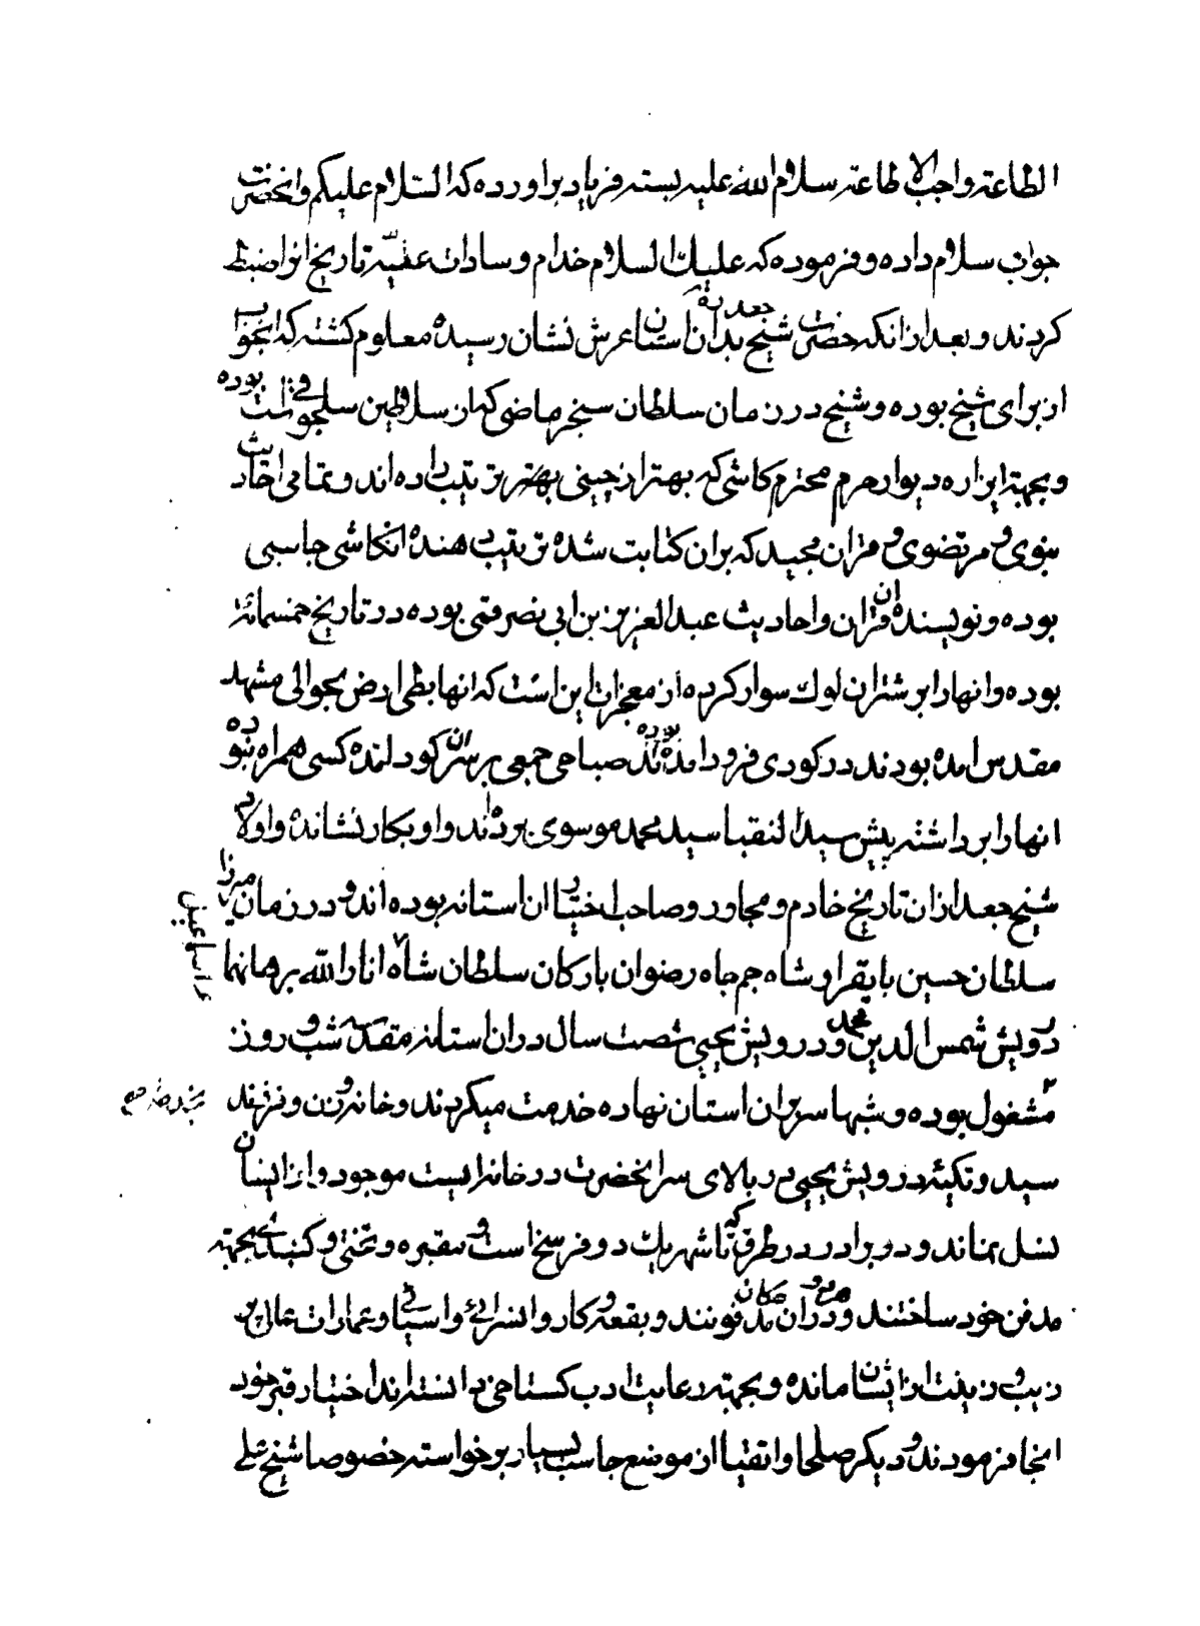 الطاعته واجب الاطاعته سلام الله علیه بسته فریاد براورده که السلام علیکم وانحضرت
جواب سلام داده وفرموده که علیک السلام خدام وسادات عقبه تاریخ انرا ضبط
کردند وبعد ازانکه حضرت شیخ جعد بدان استان عرش نشان رسیده معلوم کشته که انجواب
از برای شیخ بوده وشیخ در زمان سلطان سنجر ماضی کهان سلاطین سلجوقست بوده
وبجهة ایزاره دیوار حرم محترم کاشی که بهتر از چینی بهتر ترتیب داده اند وتمامی احادیث
نبوی و مرتضوی و قران مجید که بران کتابت شده ترتیب دهنده انکاشی جاسبی
بوده ونویسنده ان قران واحادیث عبد العزیز بن ابی نصر قمی بوده در تاریخ خمسمائة
بوده وانها را بر شتران لوک سوار کرده از معجزات این است که انها بطی ارض بحوالی مشهد
مقدس امده بودند در کودی فرود امده بوده اند صباحی جمعی بر سر ان کود امده کسی همراه نبوده
انها را برداشته پیش سید النقبا سید محمد موسوی برده اند و او بکار نشانده و اولاد
شیخ جعد ازان تاریخ خادم ومجاور وصاحب اختیار ان استانه بوده اند و در زمان میرزا
سلطان حسین بایقرا و شاه جم جاه رضوان بارکان سلطان شاه انار الله برهانهما
درویش شمس الدین محمد و درویش یحیی شصت سال دران استانه مقدسه شب و روز
مشغول بوده و شبها سر بران استان نهاده خدمت میکردند وخانه و زن و فرزند
سید وتکیه درویش یحیی در بالای سر انحضرت در خانه ایست موجود و از ایشان
نسل نماند ودو برادر در طرق که تا شهر یک دو فرسخ است و مقبره و تختی و کنبدی بجهته
مدفن خود ساختند و در ان مکان مدفونند وبقعه و کاروانسرائی واسیائی وعمارات عالی پر
زیب و زینت از ایشان مانده و بجهته رعایت ادب کستاخی ندانسته اند اختیار قبر خود
انجا فرمودند و دیکر صلحا واتقیا از موضع جاسب بسیار برخواسته خصوصا شیخ علی